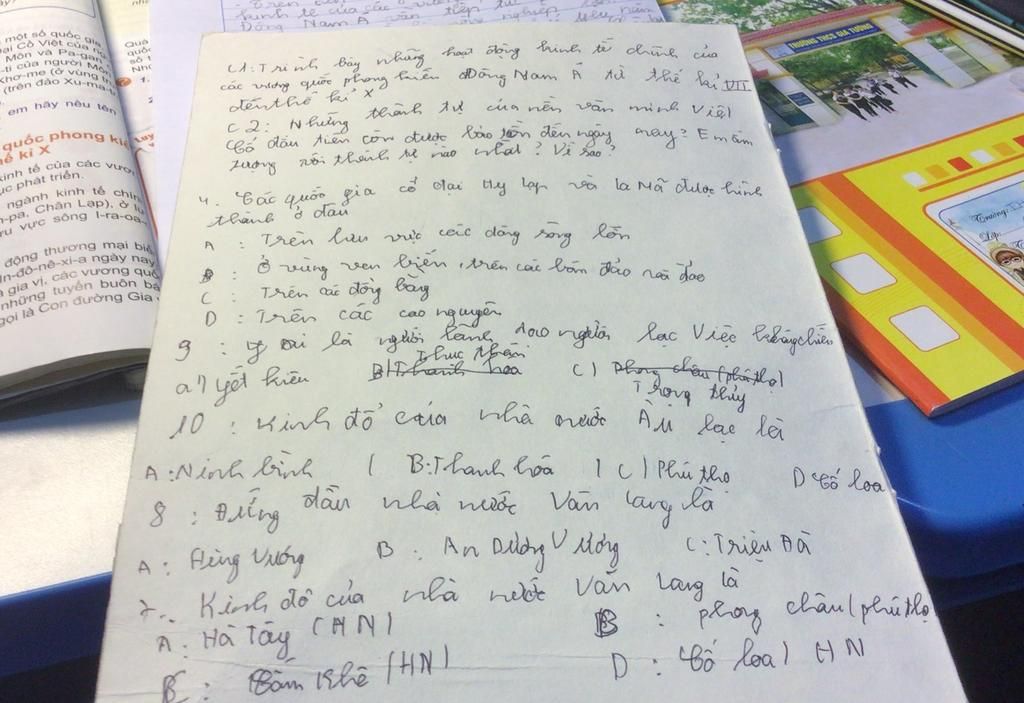 một số quốc gia
ại Cồ Việt của
Môn và Pa-gan
ti của người Môn
Khơ-me (ở vùng
(trên đảo Xu-ma-t
em hãy nêu tên
quốc phong kiế
hế kỉ X
kinh tế của các vươ
ục phát triển.
ngành kinh tế chín
-pa, Chân Lạp), ở lư
u vực sông I-ra-oa-
động thương mại biể
In-đô-nê-xi-a ngày nay
gia vị, các vương quố
những tuyến buôn bá
gọi là Con đường Gia
kinh tế của các
Đông Nam Á
C1: Trình bày những hoạt động kinh tế chính của
các vương quốc phong kiến Đông Nam Á từ thế kỉ VII
đến thế kỉ X
C2: Những thành tự của nền văn minh Việt
Cổ đầu tiên còn được bảo tồn đến ngày nay? Em ấn
tượng với thành tự nào nhất? Vì sao?
4. Các quốc gia cổ đại Hy Lạp và La Mã được hình
thành ở đâu
A : Trên lưu vực các dòng sông lớn
B : Ở vùng ven biển, trên các bán đảo và đảo
C : Trên các đồng bằng
D : Trên các cao nguyên
9 : ai là người lãnh đạo người lạc Việt kháng chiến
Thục Phán
a) Yết kiêu B) Thanh hoa C) Phong châu (phú thọ)
Trọng thủy
10 : Kinh đô của nhà nước Âu lạc là
A: Ninh bình B: Thanh hóa C) Phú thọ D Cổ loa
8 : Đứng đầu nhà nước Văn Lang là
A : Hùng Vương B : An Dương Vương C : Triệu Đà
7.. Kinh đô của nhà nước Văn Lang là
A : Hà Tây (HN) B : phong châu (phú thọ)
C : Cấm Khê (HN) D : Cổ loa) HN
TRƯỜNG THCS GIA TƯỜNG
Trường:
Lớp: